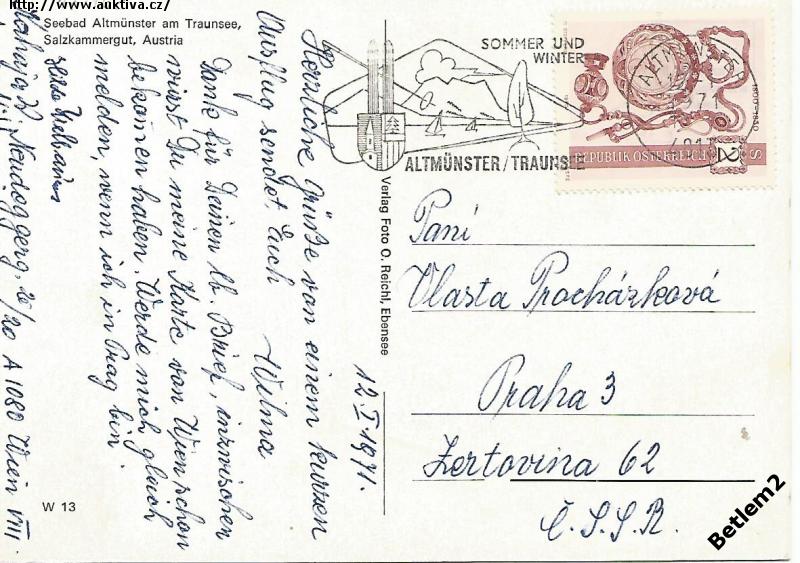 http://www.auktiva.cz/
Seebad Altmünster am Traunsee,
Salzkammergut, Austria
SOMMER UND
WINTER
ALTMÜNSTER/TRAUNSEE
REPUBLIK ÖSTERREICH
S 2
12.I.1971.
Herzliche Grüße von einem kurzen
Ausflug sendet Euch
Wilma
Dank für Deinen lb. Brief, inzwischen
wirst Du meine Karte von Wien schon
bekommen haben. Werde mich gleich
melden, wenn ich in Prag bin.
Neudeggerg. 20/20 A 1080 Wien VIII.
Verlag Foto O. Reichl, Ebensee
Paní
Vlasta Procházková
Praha 3
Žertovina 62
Č.S.S.R.
W 13
Betlem2